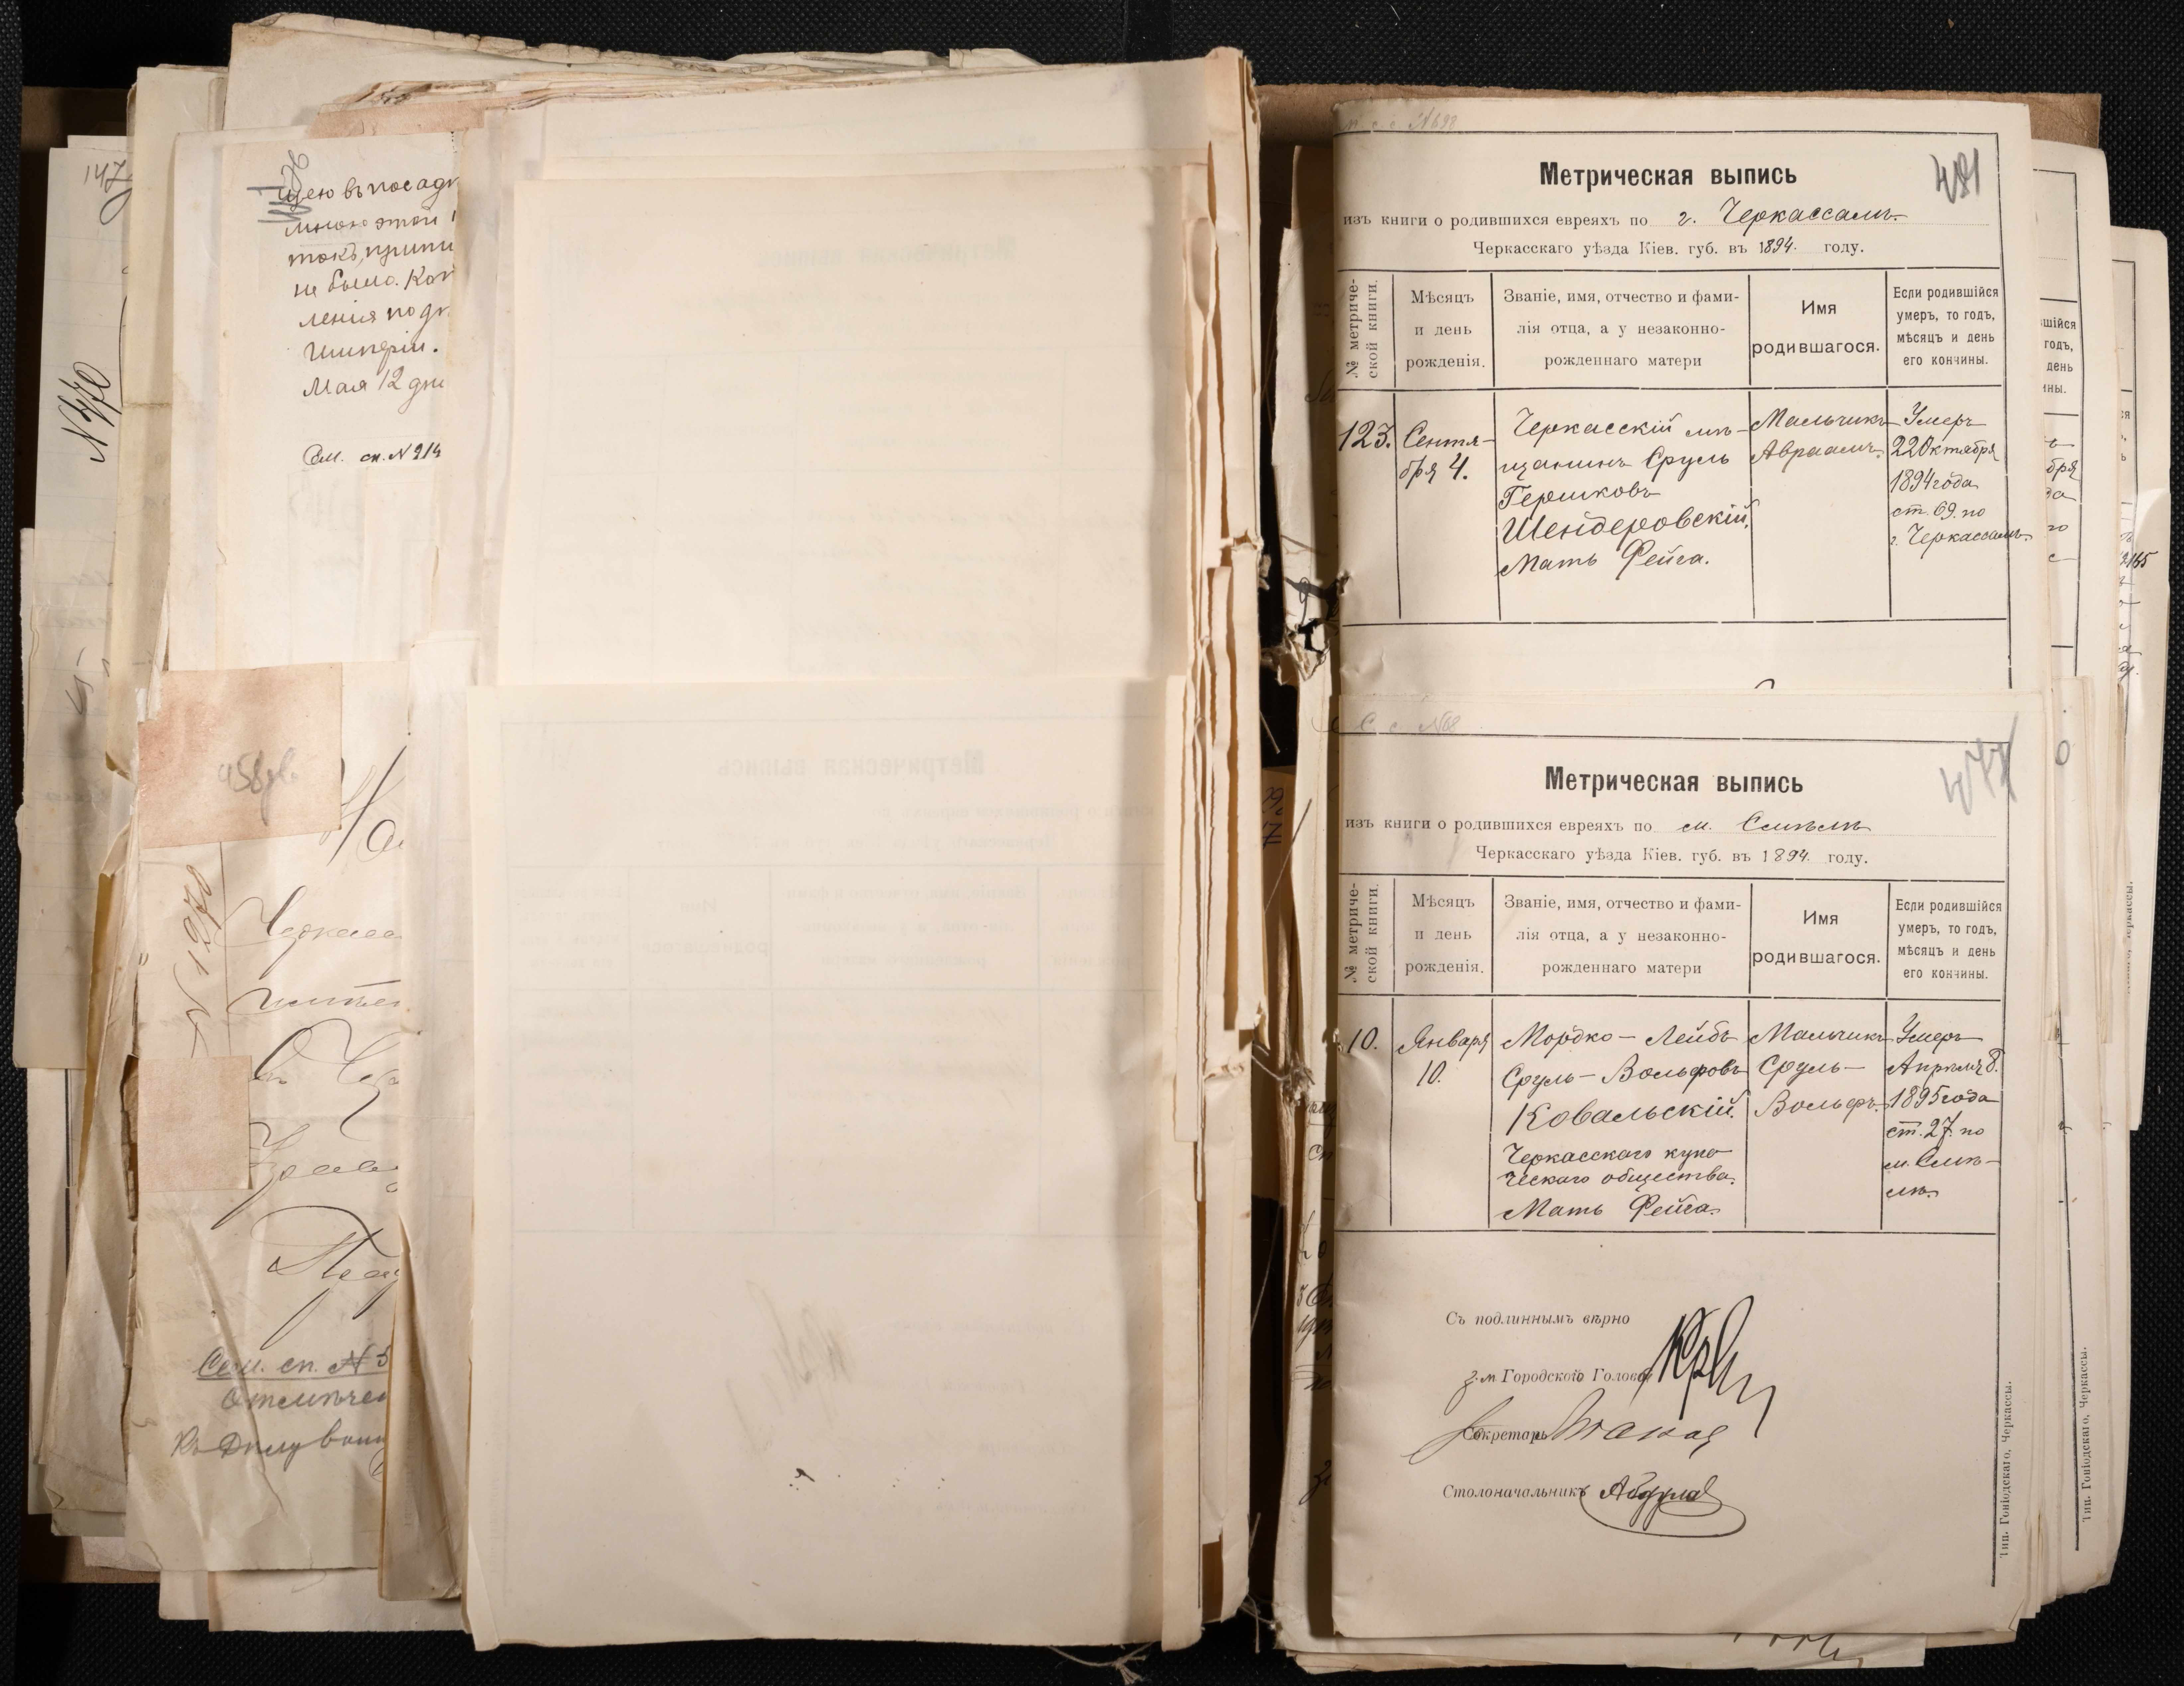 147
N 470
щею въ посадк
мною этой
токъ, припи
не было. Кан
ленiя по дк
Имперiи.
Мая 12 дня
Сем. сп. N 214
458 об.
N 1270
Черкасс
Сем. сп. N 5
Отмѣчен
Къ дѣлу воин
N 698
481
Метрическая выпись
изъ книги о родившихся евреяхъ по г. Черкассамъ.
Черкасскаго уѣзда Кіев. губ. въ 1894. году.
№ метриче-
ской книги.
Мѣсяцъ
и день
рожденія.
Званіе, имя, отчество и фами-
лія отца, а у незаконно-
рожденнаго матери
Имя
родившагося.
Если родившійся
умеръ, то годъ,
мѣсяцъ и день
его кончины.
123.
Сентя-
бря 4.
Черкасскій мѣ-
щанинъ Сруль
Гершковъ
Шендеровскій.
Мать Фейга.
Мальчикъ
Авраамъ.
Умеръ
22 Октября
1894 года
ст. 69. по
г. Черкассамъ.
С. с. №8
477
Метрическая выпись
изъ книги о родившихся евреяхъ по м. Смѣлѣ
Черкасскаго уѣзда Кіев. губ. въ 1894. году.
№ метриче-
ской книги.
Мѣсяцъ
и день
рожденія.
Званіе, имя, отчество и фами-
лія отца, а у незаконно-
рожденнаго матери
Имя
родившагося.
Если родившійся
умеръ, то годъ,
мѣсяцъ и день
его кончины.
10.
Января
10.
Мордко-Лейбъ
Сруль-Вольфовъ
Ковальскій.
Черкасскаго купе
ческаго общества.
Мать Фейга.
Мальчикъ
Сруль-
Вольфъ.
Умеръ
Апрѣля 8.
1895 года
ст. 27. по
м. Смѣ-
лѣ.
Съ подлиннымъ вѣрно
з. м. Городского Головы
Секретарь
Столоначальникъ
Тип. Гоніодскаго, Черкассы.
шійся
годъ,
день
ины.
бря
да
го
Тип. Гоніодскаго, Черкассы.